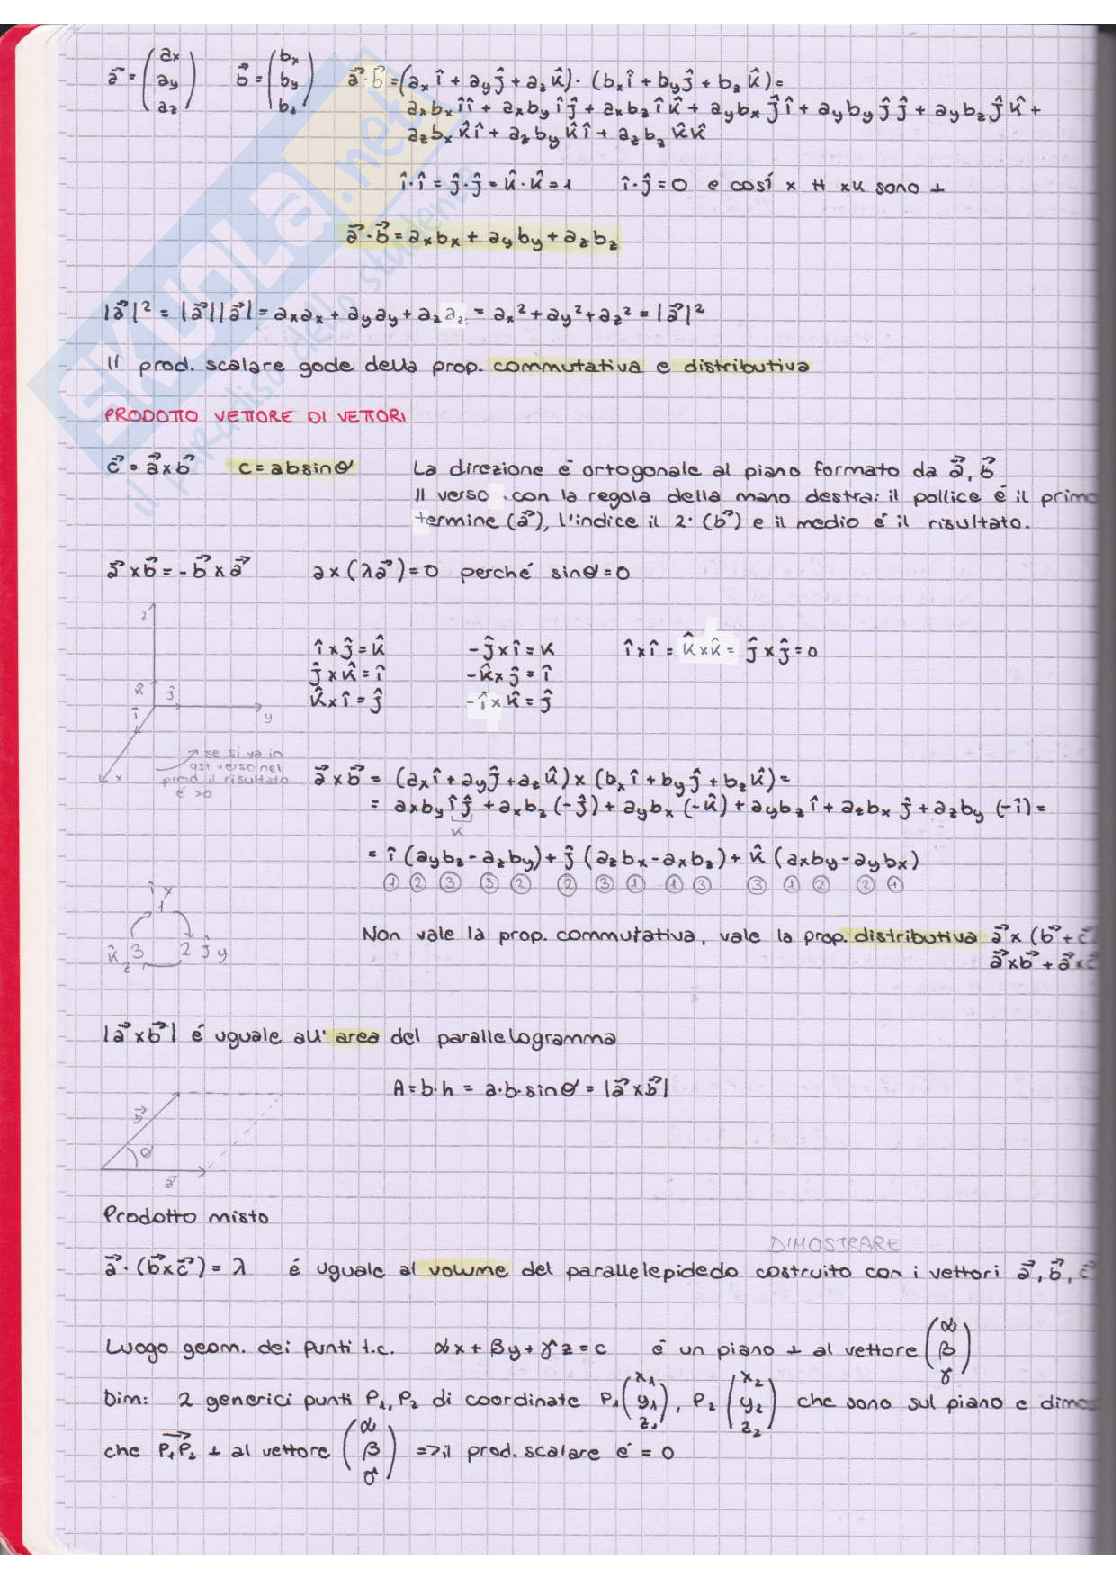 a⃗ = (ax ay az)   b⃗ = (bx by bz)   a⃗·b⃗ = (ax î + ay ĵ + az k̂)·(bx î + by ĵ + bz k̂) =
axbx î î + axby î ĵ + axbz î k̂ + aybx ĵ î + ayby ĵ ĵ + aybz ĵ k̂ +
azbx k̂ î + azby k̂ î + azbz k̂ k̂
î·î = ĵ·ĵ = k̂·k̂ = 1   î·ĵ = 0 e così x tt xk sono ⊥
a⃗·b⃗ = axbx + ayby + azbz
|a⃗|² = |a⃗||a⃗| = axax + ayay + azaz = ax² + ay² + az² = |a⃗|²
Il prod. scalare gode della prop. commutativa e distributiva
PRODOTTO VETTORE DI VETTORI
c⃗ = a⃗ x b⃗   c = ab sinθ   La direzione é ortogonale al piano formato da a⃗, b⃗
Il verso con la regola della mano destra: il pollice é il primo
termine (a⃗), l'indice il 2° (b⃗) e il medio é il risultato.
a⃗ x b⃗ = - b⃗ x a⃗   a x (λa⃗) = 0 perché sinθ = 0
z
î x ĵ = k̂   -ĵ x î = k   î x î = k̂ x k̂ = ĵ x ĵ = 0
ĵ x k̂ = î   -k̂ x ĵ = î
k̂ x î = ĵ   -î x k̂ = ĵ
ĵ
î
y
x
se si va in
verso nel
prod il risultato
é >0
a⃗ x b⃗ = (ax î + ay ĵ + az k̂) x (bx î + by ĵ + bz k̂) =
= axby î ĵ + axbz (-ĵ) + aybx (-k̂) + aybz î + azbx ĵ + azby (-î) =
k
= î (aybz - azby) + ĵ (azbx - axbz) + k̂ (axby - aybx)
① ② ③ ③ ② ② ③ ① ① ③ ③ ① ② ② ①
î x
1
k̂ z 3   2 ĵ y
Non vale la prop. commutativa, vale la prop. distributiva a⃗ x (b⃗ + c
a⃗ x b⃗ + a⃗ x c
|a⃗ x b⃗| é uguale all'area del parallelogramma
A = b·h = a·b·sinθ = |a⃗ x b⃗|
b⃗
θ
a⃗
Prodotto misto
DIMOSTRARE
a⃗·(b⃗ x c⃗) = λ   é uguale al volume del parallelepidedo costruito con i vettori a⃗, b⃗, c
Luogo geom. dei punti t.c.   αx + βy + γz = c   é un piano ⊥ al vettore (α β γ)
Dim: 2 generici punti P₁, P₂ di coordinate P₁ (x₁ y₁ z₁), P₂ (x₂ y₂ z₂) che sono sul piano e dimos
che P₁P₂ ⊥ al vettore (α β γ) => il prod. scalare é = 0
SKUOLA.net
il paradiso dello studente